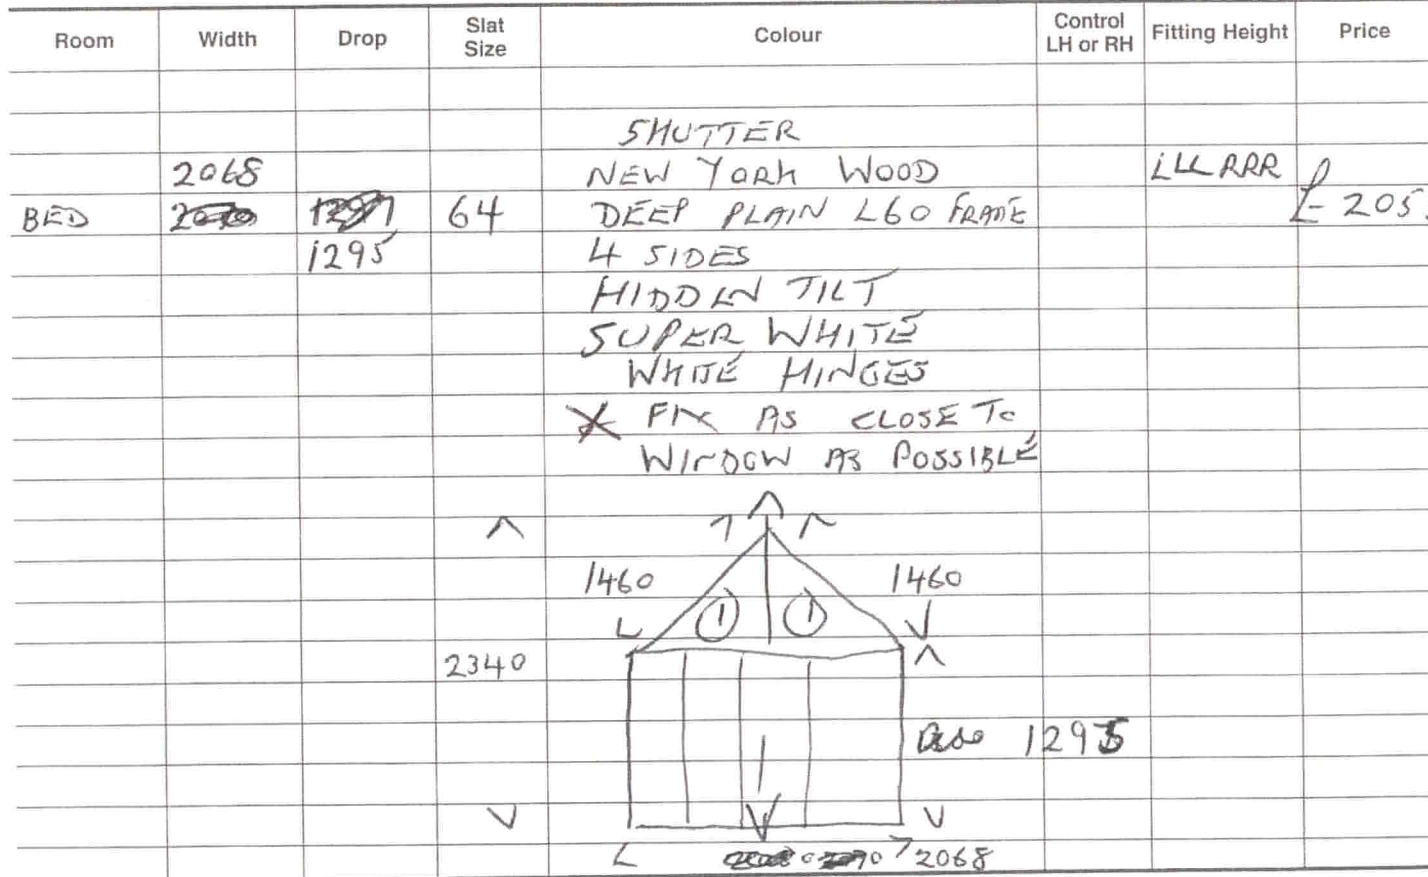 Room Width Drop Slat Size Colour Control LH or RH Fitting Height Price
SHUTTER
2068 NEW YORK WOOD LLLRRR
BED 1297 64 DEEP PLAIN L60 FRAME £205
1295 4 SIDES
HIDDEN TILT
SUPER WHITE
WHITE HINGES
FIX AS CLOSE TO
WINDOW AS POSSIBLE
1460 1460
1 1
2340
1295
2068